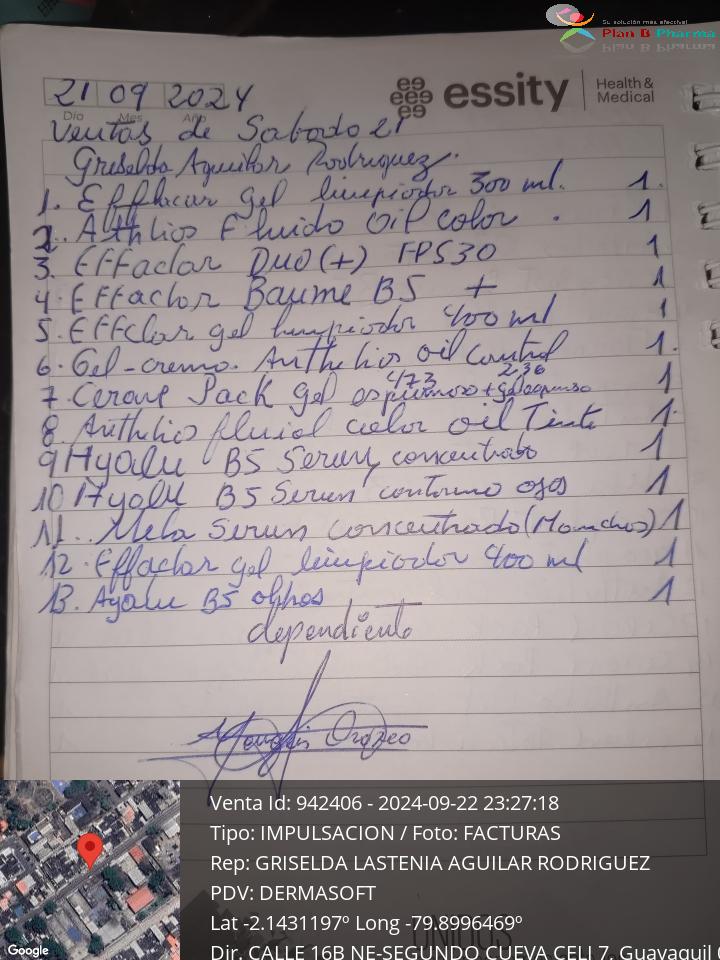 Su solución más efectiva!
Plan B Pharma
21 09 2024
Día Mes Año
essity
Health &
Medical
Ventas de Sabado 21
Griselda Aguilar Rodriguez.
1. Effaclar gel limpiador 300 ml. 1.
2.. Athlios Fluido oil color . 1
3. Effaclar Duo(+) FPS30 1
4. Effaclar Baume B5 + 1
5. Effclar gel limpiador 400 ml 1
6. Gel-crema. Anthelios oil control 1.
473 236
7. Cerave Pack gel espumoso + gel espumoso 1
8. Anthelios fluid color oil Tinte 1.
9 Hyalu B5 Serum concentrado 1
10 Hyalu B5 Serum contorno ojos 1
11.. Mela Serum concentrado (Manchas) 1
12. Effaclar gel limpiador 400 ml 1
13. Ayalu B5 ojos 1
dependiente
Orozco
Venta Id: 942406 - 2024-09-22 23:27:18
Tipo: IMPULSACION / Foto: FACTURAS
Rep: GRISELDA LASTENIA AGUILAR RODRIGUEZ
PDV: DERMASOFT
Lat -2.1431197º Long -79.8996469º
Dir. CALLE 16B NE-SEGUNDO CUEVA CELI 7, Guayaquil
Google